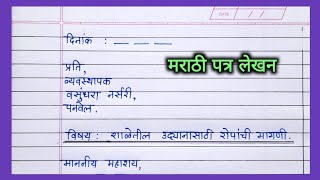 दिनांक : _ _ _
मराठी पत्र लेखन
प्रति,
व्यवस्थापक
वसुंधरा नर्सरी,
पनवेल.
विषय : शाळेतील उद्यानासाठी रोपांची मागणी.
माननीय महाशय,